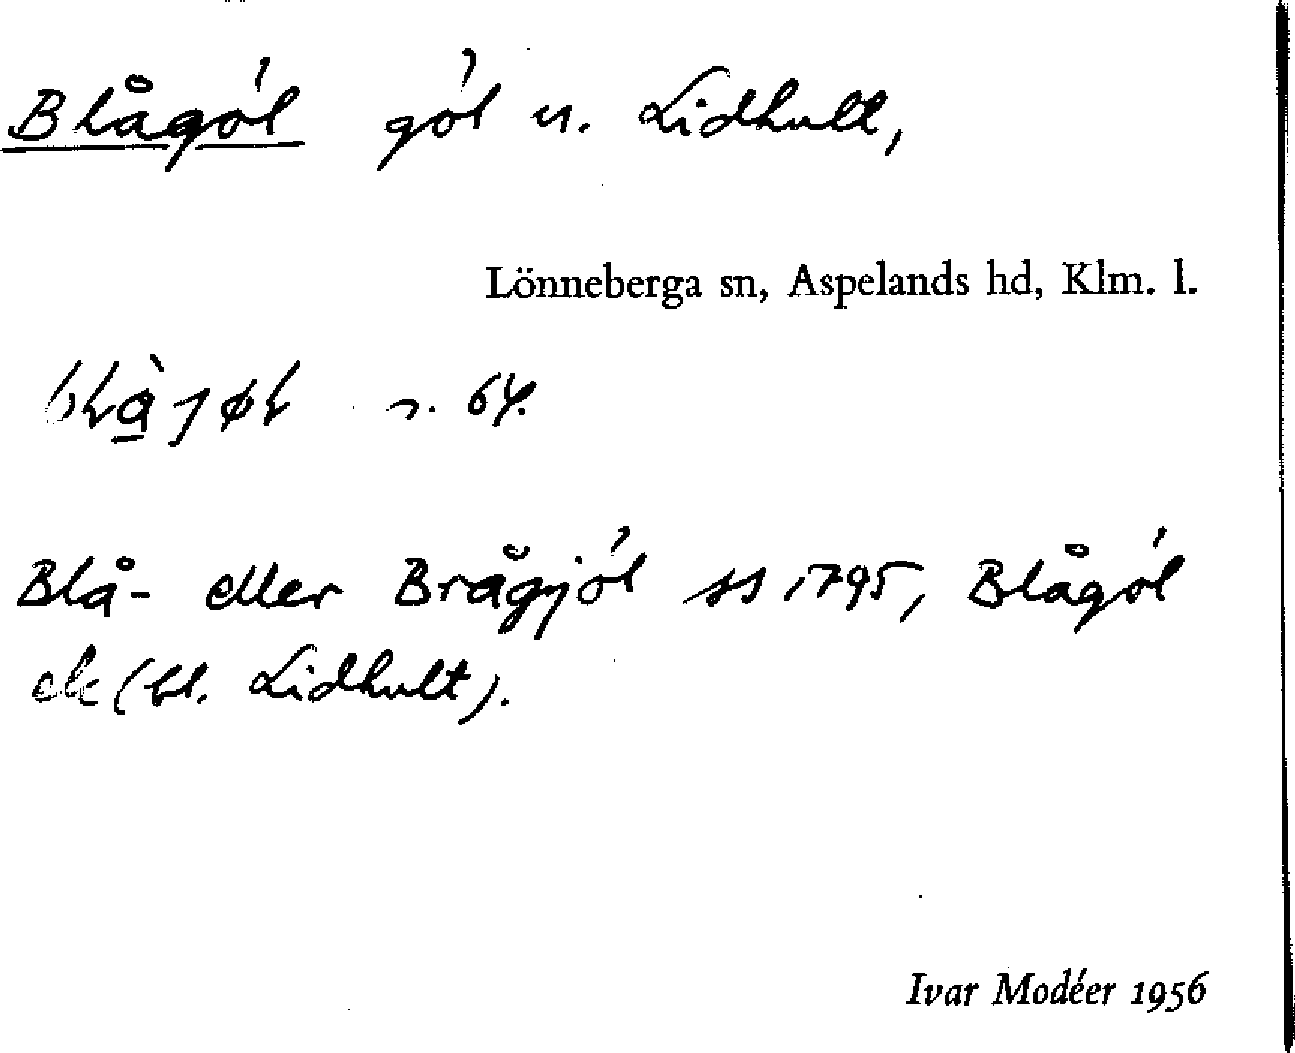 Blågól gól n. Lidhult,
Lönneberga sn, Aspelands hd, Klm. l.
64.
Blå- eller Brågjól ss 1795, Blågól
ek (bl. Lidhult).
Ivar Modéer 1956